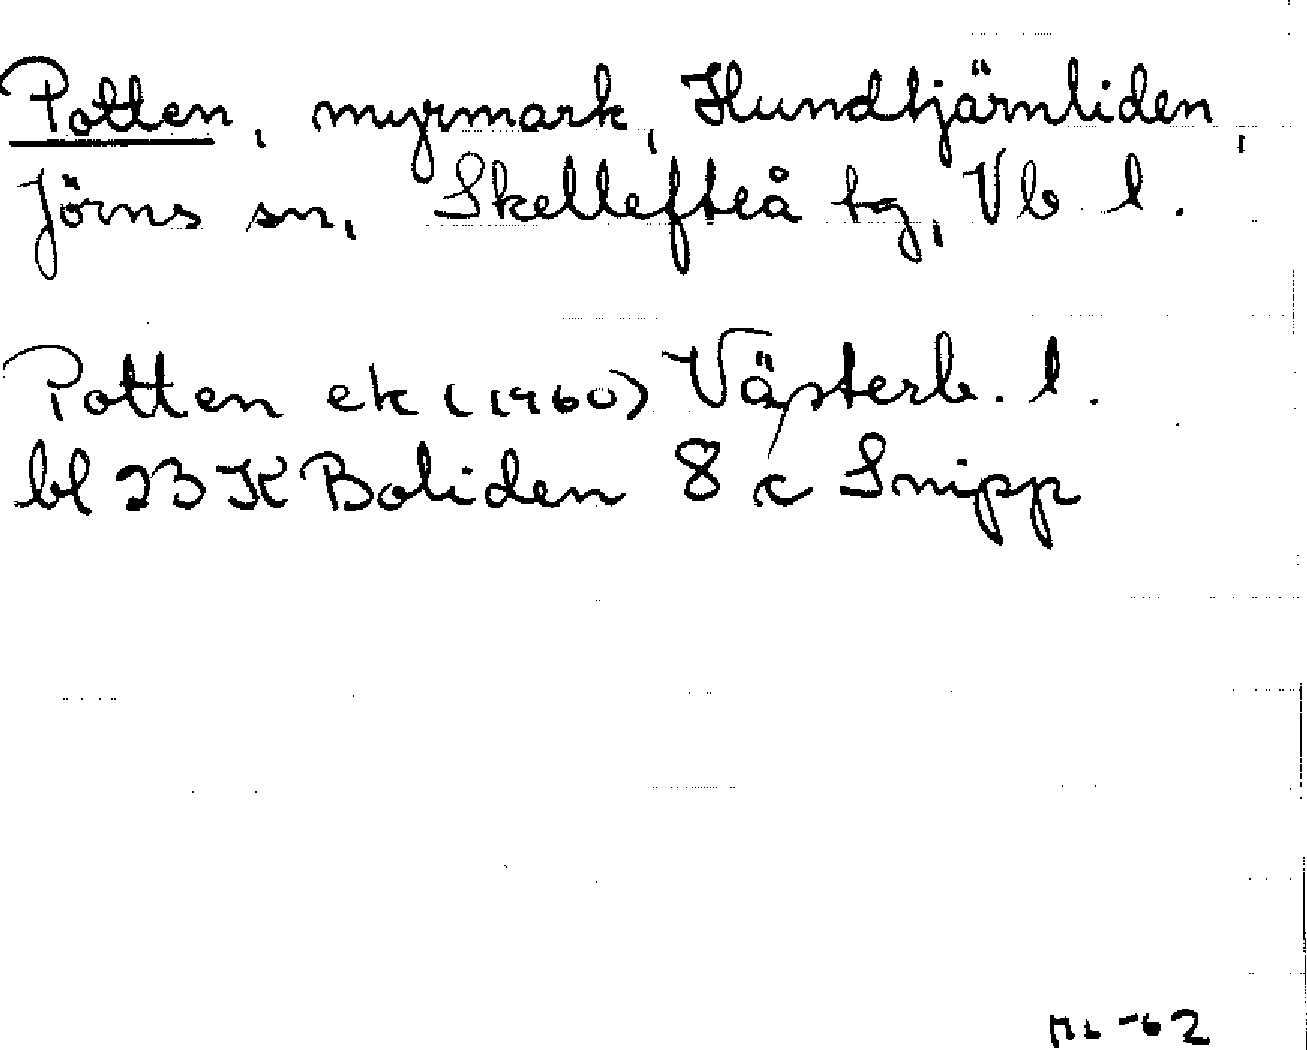 Potten, myrmark, Hundtjärnliden,
Jörns sn, Skellefteå tg, Vb l.
Potten ek (1960) Västerb. l.
bl 23 K Boliden 8 c Snipp
-62